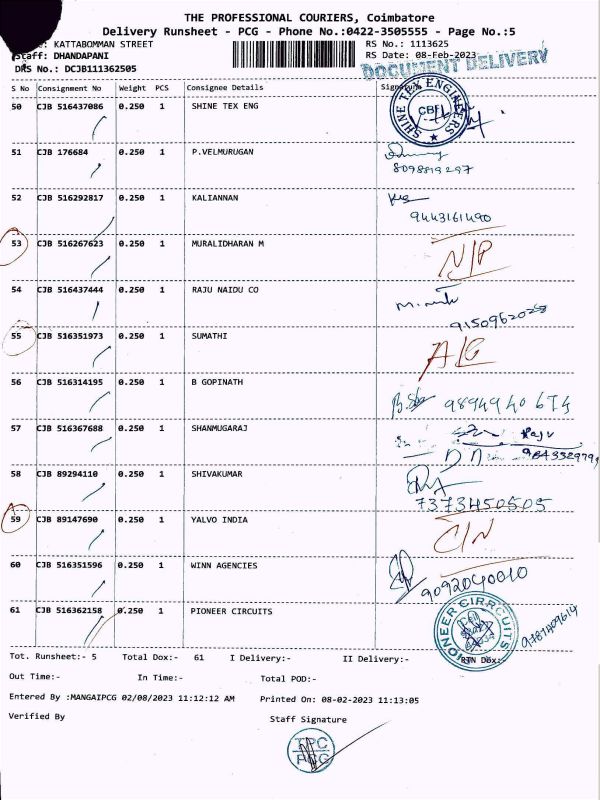 THE PROFESSIONAL COURIERS, Coimbatore
Delivery Runsheet - PCG - Phone No.:0422-3505555 - Page No.:5
KATTABOMMAN STREET RS No.: 1113625
Staff: DHANDAPANI RS Date: 08-Feb-2023
DRS No.: DCJB111362505 DOCUMENT DELIVERY
S No Consignment No Weight PCS Consignee Details Signature
50 CJB 516437086 0.250 1 SHINE TEX ENG SHINE TEX ENGINEERS CBE
51 CJB 176684 0.250 1 P.VELMURUGAN
8098819297
52 CJB 516292817 0.250 1 KALIANNAN
9443161490
53 CJB 516267623 0.250 1 MURALIDHARAN M N/P
54 CJB 516437444 0.250 1 RAJU NAIDU CO
9150962028
55 CJB 516351973 0.250 1 SUMATHI A/G
56 CJB 516314195 0.250 1 B GOPINATH
57 CJB 516367688 0.250 1 SHANMUGARAJ
58 CJB 89294110 0.250 1 SHIVAKUMAR
7373450505
59 CJB 89147690 0.250 1 YALVO INDIA C/N
60 CJB 516351596 0.250 1 WINN AGENCIES
9092040010
61 CJB 516362158 0.250 1 PIONEER CIRCUITS PIONEER CIRRCUITS
9787409614
Tot. Runsheet:- 5 Total Dox:- 61 I Delivery:- II Delivery:- RTN Dox:-
Out Time:- In Time:- Total POD:-
Entered By :MANGAIPCG 02/08/2023 11:12:12 AM Printed On: 08-02-2023 11:13:05
Verified By Staff Signature
TPC
PCG